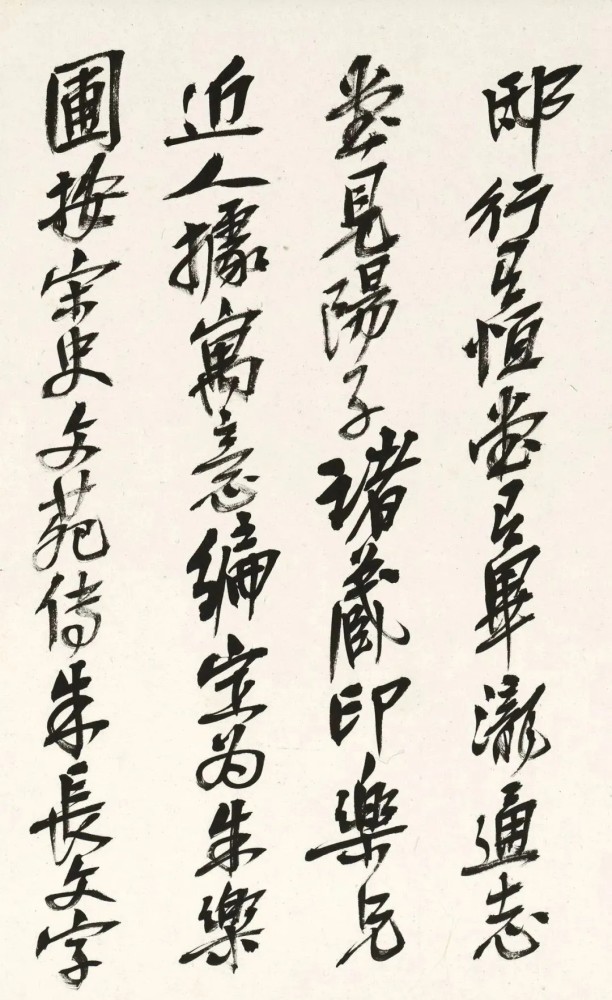 邸行有恒堂有畢瀧通志
堂見陽子諸藏印樂兄
近人據寓意編定為朱樂
圃按宋史文苑傳朱長文字